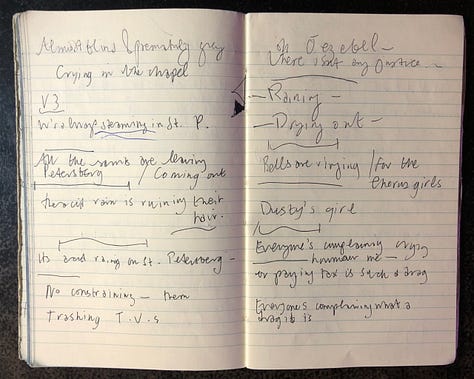 Almost blind & prematurely grey
Crying in the chapel
V3
We're always steaming in St. P.
All the rents are leaving
Petersberg / Coming out
the acid rain is ruining their
hair.
Its acid raing on St. Petersberg -
No constraining - them
trashing T.V.s
oh Jezebel -
there isnt any justice -
- Raining -
- Drying out -
Bells are ringing / for the
chorus girls
Dusty's girl
Everyone's complaining crying
humour me -
or paying tax is such a drag
Everyone's complaining what a
drag it is